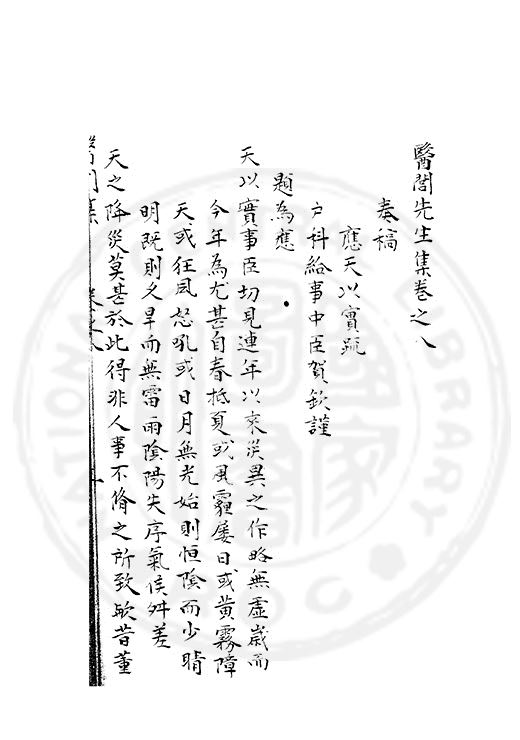 醫閭先生集卷之八
奏稿
應天以實疏
户科給事中臣賀欽謹
題為應
天以實事臣切見連年以來災異之作略無虛歲而
今年為尤甚自春抵夏或風霾屡日或黄霧障
天或狂風怒吼或日月無光始則恒陰而少晴
明既則久旱而無雷雨陰陽失序氣候舛差
天之降災莫甚於此得非人事不脩之所致歟昔董